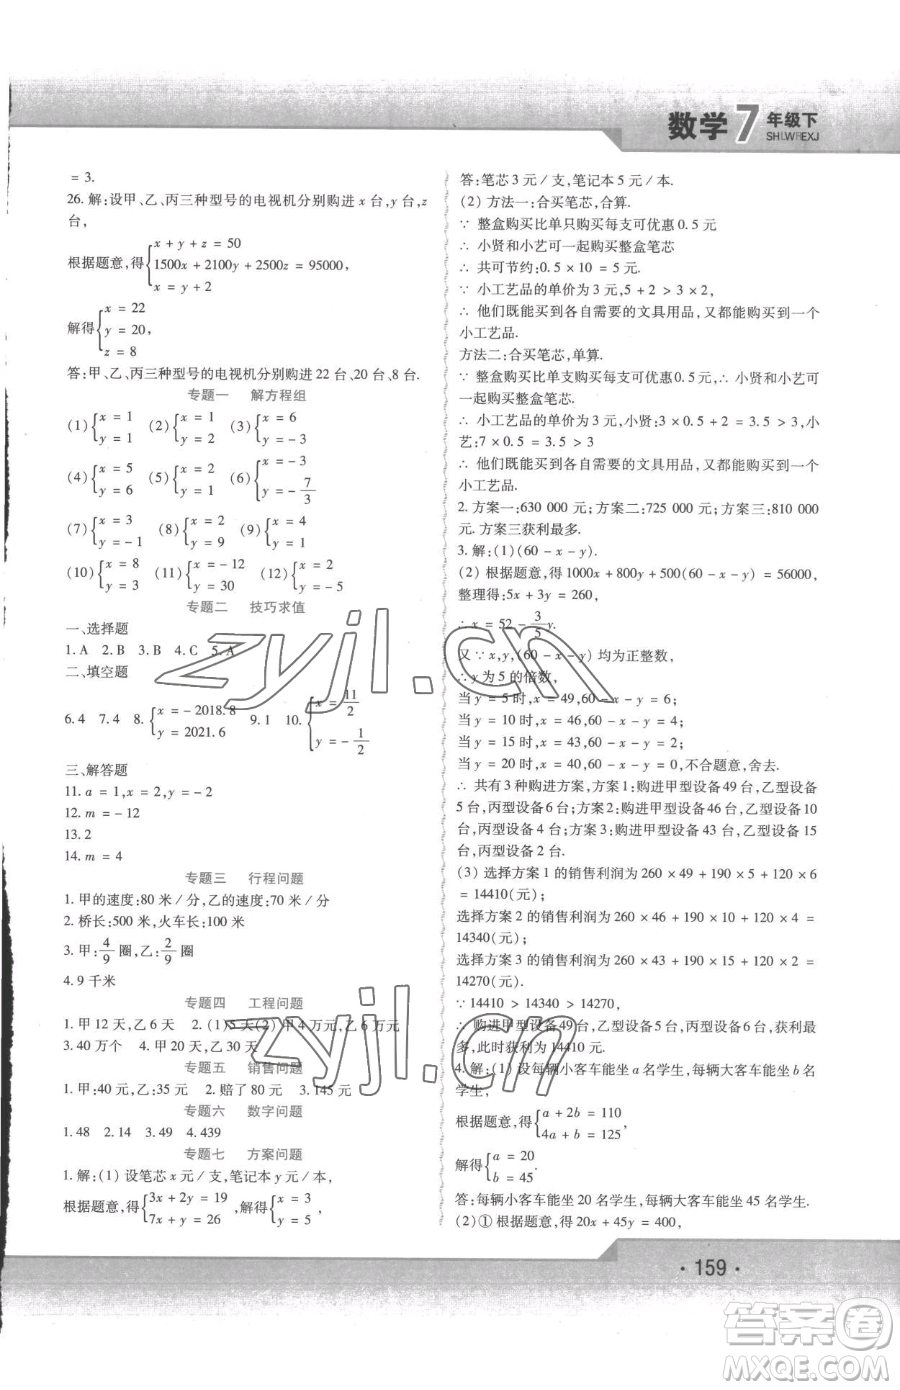 数学7年级下
SHLWREXJ
= 3.
26. 解:设甲、乙、丙三种型号的电视机分别购进 x 台,y 台,z
台,
根据题意,得{x + y + z = 50
1500x + 2100y + 2500z = 95000,
x = y + 2
解得{x = 22
y = 20,
z = 8
答:甲、乙、丙三种型号的电视机分别购进 22 台、20 台、8 台.
专题一 解方程组
(1){x = 1 y = 1 (2){x = 1 y = 2 (3){x = 6 y = - 3
(4){x = 5 y = 6 (5){x = 4 y = 1 (6){x = - 3 y = - 7/3
(7){x = 3 y = - 1 (8){x = 2 y = 9 (9){x = 4 y = 1
(10){x = 8 y = 3 (11){x = - 12 y = 30 (12){x = 2 y = - 5
专题二 技巧求值
一、选择题
1. A 2. B 3. B 4. C 5. A
二、填空题
6. 4 7. 4 8. {x = - 2018. 8 y = 2021. 6 9. 1 10. {x = 11/2 y = - 1/2
三、解答题
11. a = 1,x = 2,y = - 2
12. m = - 12
13. 2
14. m = 4
专题三 行程问题
1. 甲的速度:80 米/分,乙的速度:70 米/分
2. 桥长:500 米,火车长:100 米
3. 甲:4/9圈,乙:2/9圈
4. 9 千米
专题四 工程问题
1. 甲 12 天,乙 6 天 2. (1)5 天(2)甲 4 万元,乙 6 万元
3. 40 万个 4. 甲 20 天,乙 30 天
专题五 销售问题
1. 甲:40 元,乙:35 元 2. 赔了 80 元 3. 145 元
专题六 数字问题
1. 48 2. 14 3. 49 4. 439
专题七 方案问题
1. 解:(1) 设笔芯 x 元/支,笔记本 y 元/本,
根据题意,得{3x + 2y = 19 7x + y = 26 ,解得{x = 3 y = 5
答:笔芯 3 元/支,笔记本 5 元/本.
(2) 方法一:合买笔芯,合算.
∵ 整盒购买比单只购买每支可优惠 0.5 元
∴ 小贤和小艺可一起购买整盒笔芯
∴ 共可节约:0.5 × 10 = 5 元.
∵ 小工艺品的单价为 3 元,5 + 2 > 3 × 2,
∴ 他们既能买到各自需要的文具用品,又都能购买到一个
小工艺品.
方法二:合买笔芯,单算.
∵ 整盒购买比单支购买每支可优惠 0.5 元,小贤和小艺可
一起购买整盒笔芯.
∴ 小工艺品的单价为 3 元,小贤:3 × 0.5 + 2 = 3.5 > 3,小
艺:7 × 0.5 = 3.5 > 3
∴ 他们既能买到各自需要的文具用品,又都能购买到一个
小工艺品.
2. 方案一:630 000 元;方案二:725 000 元;方案三:810 000
元. 方案三获利最多.
3. 解:(1)(60 - x - y).
(2) 根据题意,得 1000x + 800y + 500(60 - x - y) = 56000,
整理得:5x + 3y = 260,
∴ x = 52 - 3/5 y.
又∵ x,y,(60 - x - y) 均为正整数,
∴ y 为 5 的倍数,
当 y = 5 时,x = 49,60 - x - y = 6;
当 y = 10 时,x = 46,60 - x - y = 4;
当 y = 15 时,x = 43,60 - x - y = 2;
当 y = 20 时,x = 40,60 - x - y = 0,不合题意,舍去.
∴ 共有 3 种购进方案,方案 1:购进甲型设备 49 台,乙型设备
5 台,丙型设备 6 台;方案 2:购进甲型设备 46 台,乙型设备 10
台,丙型设备 4 台;方案 3:购进甲型设备 43 台,乙型设备 15
台,丙型设备 2 台.
(3) 选择方案 1 的销售利润为 260 × 49 + 190 × 5 + 120 × 6
= 14410(元);
选择方案 2 的销售利润为 260 × 46 + 190 × 10 + 120 × 4 =
14340(元);
选择方案 3 的销售利润为 260 × 43 + 190 × 15 + 120 × 2 =
14270(元).
∵ 14410 > 14340 > 14270,
∴ 购进甲型设备 49 台,乙型设备 5 台,丙型设备 6 台,获利最
多,此时获利为 14410 元.
4. 解:(1) 设每辆小客车能坐 a 名学生,每辆大客车能坐 b 名
学生,
根据题意,得{a + 2b = 110 4a + b = 125
解得{a = 20 b = 45 .
答:每辆小客车能坐 20 名学生,每辆大客车能坐 45 名学生.
(2)① 根据题意,得 20x + 45y = 400,
· 159 ·
zyjl.cn
zyjl.cn
答案圈
MXQE.COM